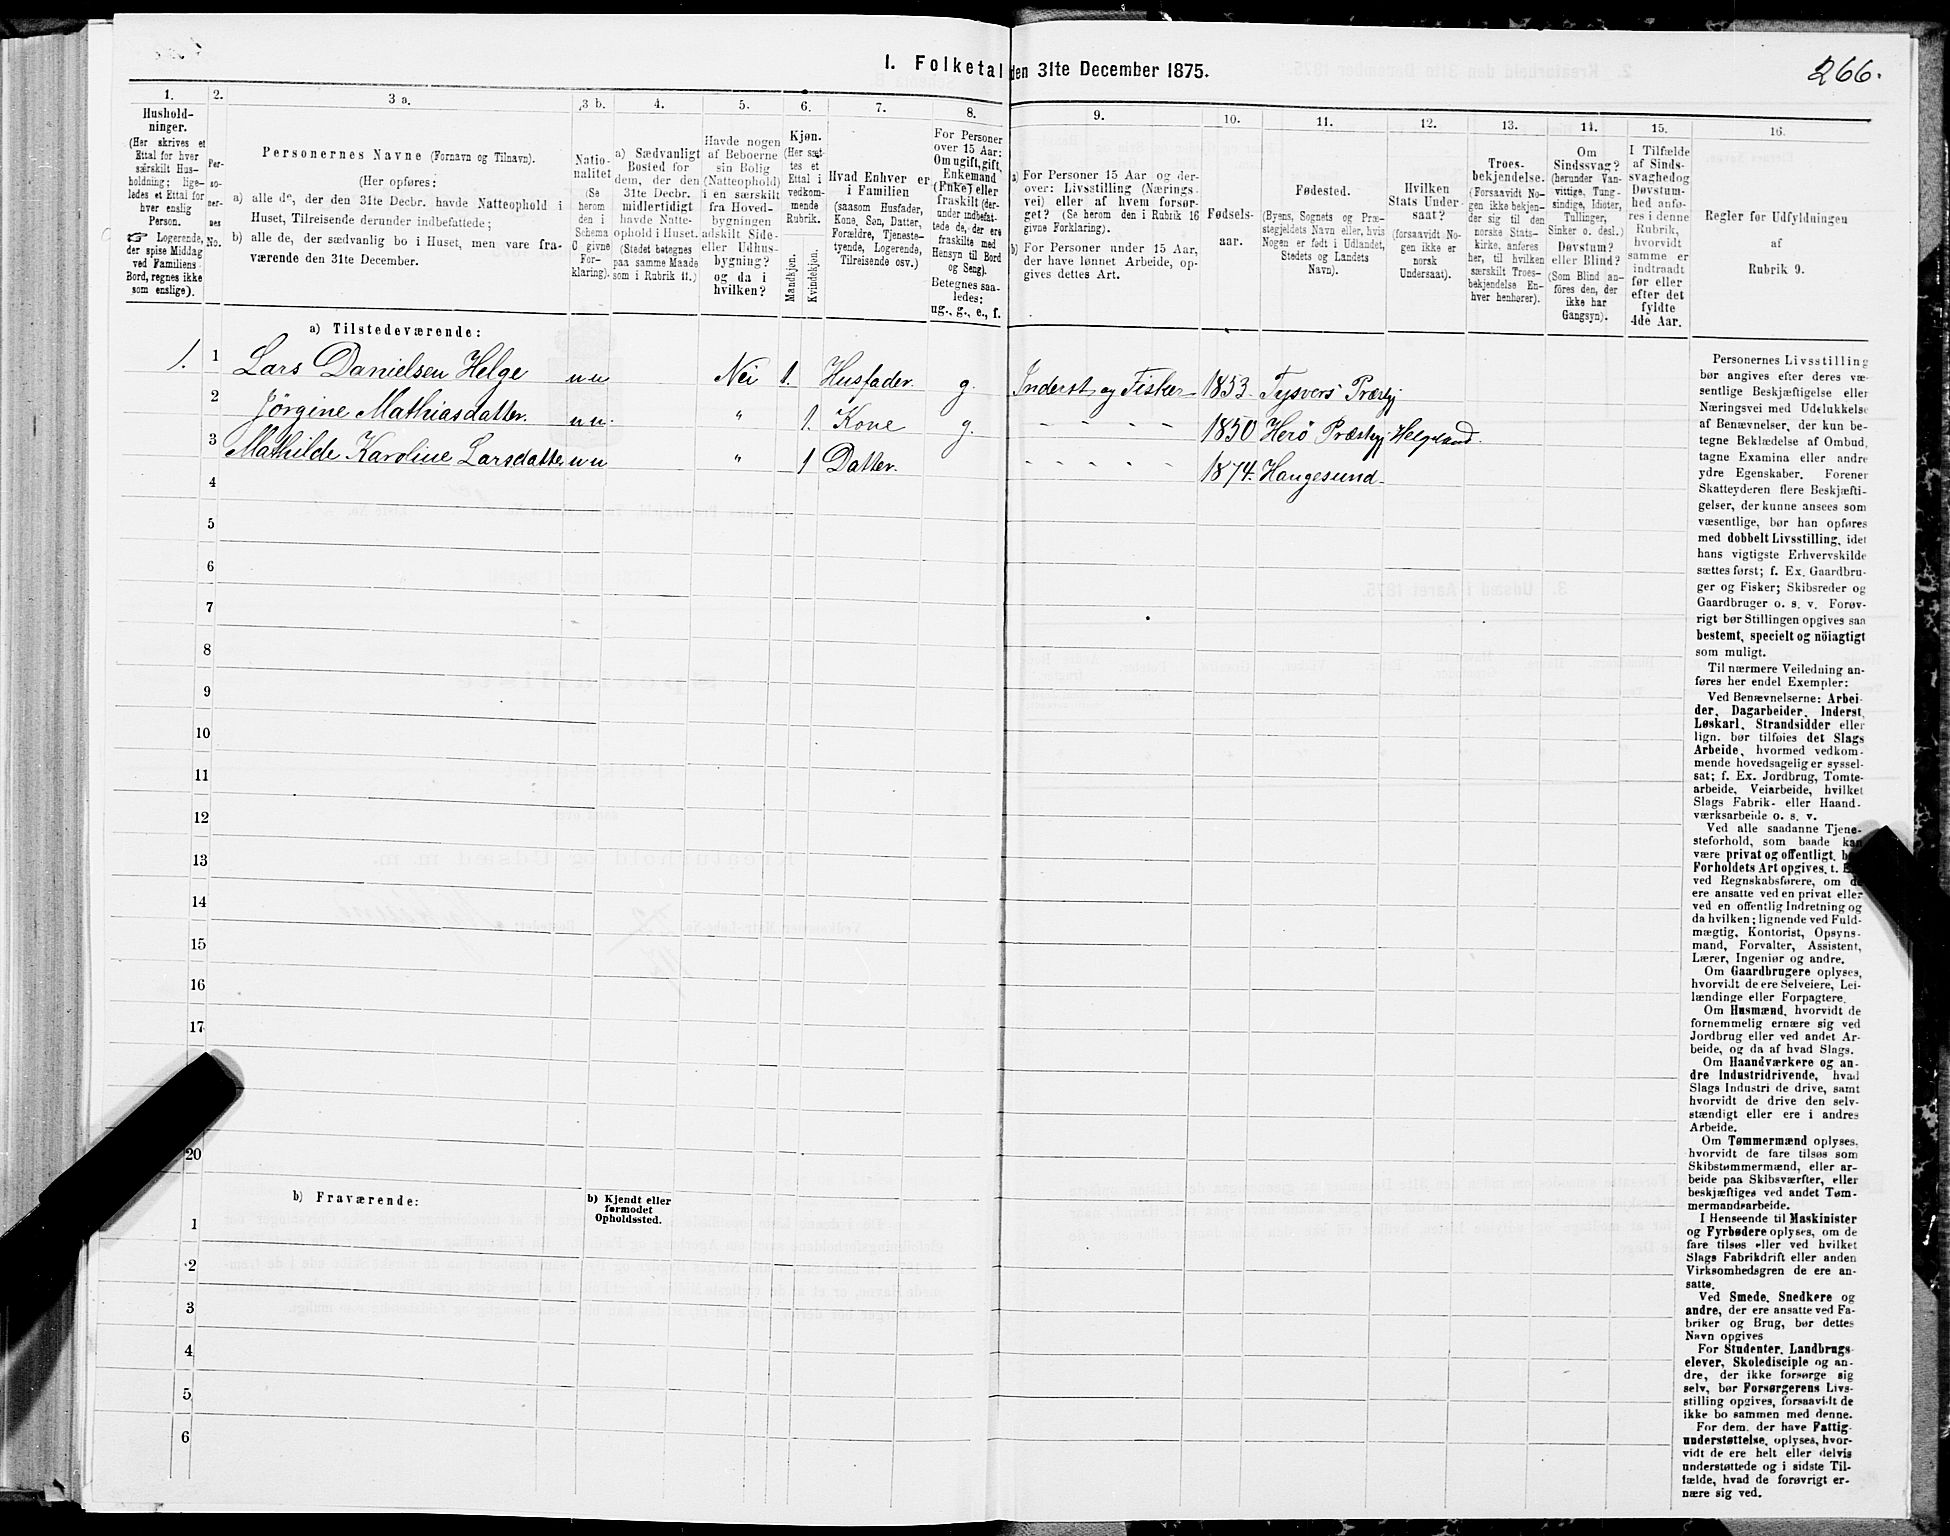 266.
1. Folketal den 31te December 1875.
1. 2. 3 a. 3 b. 4. 5. 6. 7. 8. 9. 10. 11. 12. 13. 14. 15. 16.
Hushold-
ninger.
(Her skrives et
Ettal for hver
særskilt Hus-
holdning; lige-
ledes et Ettal for
hver enslig
Person.
☞ Logerende,
der spise Middag
ved Familiens
Bord, regnes ikke
som enslige).
Per-
so-
ner-
nes
No.
Personernes Navne (Fornavn og Tilnavn).
(Her opføres:
a) alle de, der den 31te Decbr. havde Natteophold i
Huset, Tilreisende derunder indbefattede;
b) alle de, der sædvanlig bo i Huset, men vare fra-
værende den 31te December.
Natio-
nalitet
(Se
herom
den i
Schema
C givne
For-
klaring).
a) Sædvanligt
Bosted for
dem, der den
31te Decbr.
midlertidigt
havde Natte-
ophold i Huset.
(Stedet betegnes
paa samme Maade
som i Rubrik 11.)
Havde nogen
af Beboerne
sin Bolig
(Natteophold)
i en særskilt
fra Hoved-
bygningen
adskilt Side-
eller Udhus-
bygning?
og da i
hvilken?
Kjøn.
(Her sæt-
tes et
Ettal i
vedkom-
mende
Rubrik.
Mandkjøn.
Kvindekjøn.
Hvad Enhver er
i Familien
(saasom Husfader,
Kone, Søn, Datter,
Forældre, Tjeneste-
tyende, Logerende,
Tilreisende osv.).
For Personer
over 15 Aar:
Om ugift, gift,
Enkemand
(Enke) eller
fraskilt (der-
under indbefat-
tede de, der ere
fraskilte med
Hensyn til Bord
og Seng).
Betegnes saa-
ledes:
ug., g., e., f.
a) For Personer 15 Aar og der-
over: Livsstilling (Nærings-
vei) eller af hvem forsør-
get? (Se herom den i Rubrik 16
givne Forklaring).
b) For Personer under 15 Aar,
der have lønnet Arbeide, op-
gives dettes Art.
Fødsels-
aar.
Fødested.
(Byens, Sognets og Præ-
stegjeldets Navn eller, hvis
Nogen er født i Udlandet,
Stedets og Landets
Navn).
Hvilken
Stats Under-
saat?
(forsaavidt No-
gen ikke er
norsk
Undersaat).
Troes-
bekjendelse.
(Forsaavidt No-
gen ikke bekjen-
der sig til den
norske Stats-
kirke, anføres
her, til hvilken
særskilt Troes-
bekjendelse En-
hver henhører).
Om
Sindssvag?
(herunder Van-
vittige, Tung-
sindige, Idioter,
Tullinger,
Sinker o. desl.)
Døvstum?
eller Blind?
(Som Blind an-
føres den, der
ikke har
Gangsyn).
I Tilfælde
af Sinds-
svaghed og
Døvstum-
hed anfø-
res i denne
Rubrik,
hvorvidt
samme er
indtraadt
før eller
efter det
fyldte
4de Aar.
Regler for Udfyldningen
af
Rubrik 9.
a) Tilstedeværende:
1. 1 Lars Danielsen Helge nn Nei 1. Husfader g. Inderst og Fisker 1853. Tysvers Præstgj
2 Jörgine Mathiasdatter. nn. " 1. Kone g. - - - - 1850 Herö Præstgj Helgeland.
3 Mathilde Karoline Larsdatter nn " 1 Datter. - - - - 1874. Haugesund
4
5
6
7
8
9
10
11
12
13
14
15
16
17
20
b) Fraværende:
b) Kjendt eller
formodet
Opholdssted.
1
2
3
4
5
6
Personernes Livsstilling
bør angives efter deres væ-
sentlige Beskjæftigelse eller
Næringsvei med Udelukkelse
af Benævnelser, der kun be-
tegne Beklædelse af Ombud,
tagne Examina eller andre
ydre Egenskaber. Forener
Skatteyderen flere Beskjæfti-
gelser, der kunne ansees som
væsentlige, bør han opføres
med dobbelt Livsstilling, idet
hans vigtigste Erhvervskilde
sættes først; f. Ex. Gaardbru-
ger og Fisker; Skibsreder og
Gaardbruger o. s. v. Forøv-
rigt bør Stillingen opgives saa
bestemt, specielt og nöiagtigt
som muligt.
Til nærmere Veiledning an-
føres her endel Exempler:
Ved Benævnelserne: Arbei-
der, Dagarbeider, Inderst,
Løskarl, Strandsidder eller
lign. bør tilføies det Slags
Arbeide, hvormed vedkom-
mende hovedsagelig er syssel-
sat; f. Ex. Jordbrug, Tomte-
arbeide, Veiarbeide, hvilket
Slags Fabrik- eller Haand-
værksarbeide o. s. v.
Ved alle saadanne Tjene-
steforhold, som baade kan
være privat og offentligt,
Forholdets Art opgives, t.
ved Regnskabsførere, om
ere ansatte ved en privat eller
ved en offentlig Indretning og
da hvilken; lignende ved Fuld-
mægtig, Kontorist, Opsyns-
mand, Forvalter, Assistent,
Lærer, Ingeniør og andre.
Om Gaardbrugere oplyses,
hvorvidt de ere Selveiere, Lei-
lændinge eller Forpagtere.
Om Husmænd, hvorvidt de
fornemmelig ernære sig ved
Jordbrug eller ved andet Ar-
beide, og da af hvad Slags.
Om Haandværkere og an-
dre Industridrivende, hvad
Slags Industri de drive, samt
hvorvidt de drive den selv-
stændigt eller ere i andres
Arbeide.
Om Tømmermænd oplyses,
hvorvidt de fare tilsøs som
Skibstømmermænd, eller ar-
beide paa Skibsværfter, eller
beskjæftiges ved andet Tøm-
mermandsarbeide.
I Henseende til Maskinister
og Fyrbødere oplyses, om de
fare tilsøs eller ved hvilket
Slags Fabrikdrift eller anden
Virksomhedsgren de ere an-
satte.
Ved Smede, Snedkere og
andre, der ere ansatte ved Fa-
briker og Brug, bør dettes
Navn opgives
For Studenter, Landbrugs-
elever, Skoledisciple og an-
dre, der ikke forsørge sig
selv, bør Forsørgerens Livs-
stilling opgives, forsaavidt de
ikke bo sammen med denne.
For dem, der have Fattig-
understøttelse, oplyses, hvor-
vidt de ere helt eller delvis
understøttede og i sidste Til-
fælde, hvad de forøvrigt er-
nære sig ved.